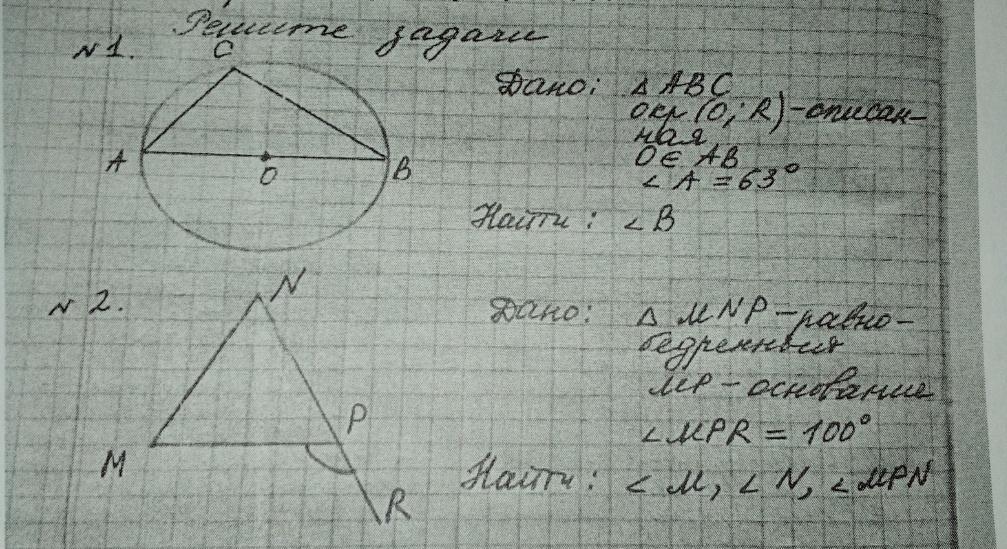 Решите задачи
№1.
C
A
O
B
Дано: △ ABC
окр.(O; R) – описан-
ная
O ∈ AB
∠A = 63°
Найти: ∠B
№2.
N
P
M
R
Дано: △ MNP – равно-
бедренный
MP – основание
∠MPR = 100°
Найти: ∠M, ∠N, ∠MPN